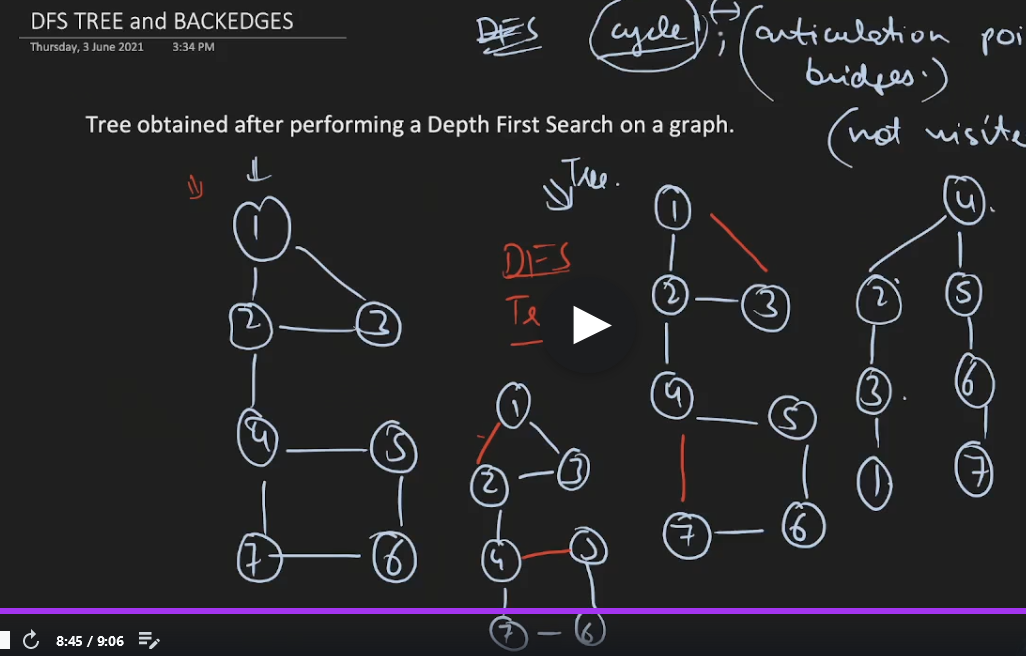 DFS TREE and BACKEDGES
Thursday, 3 June 2021 3:34 PM
DFS (cycle) ; (articulation poi
bridges.)
Tree obtained after performing a Depth First Search on a graph.
(not visite
Tree.
DFS
Te
1
2 3
4 5
7 6
1
2 3
4 5
7 6
1
2 3
4 5
7 6
4
2 5
3 6
1 7
8:45 / 9:06